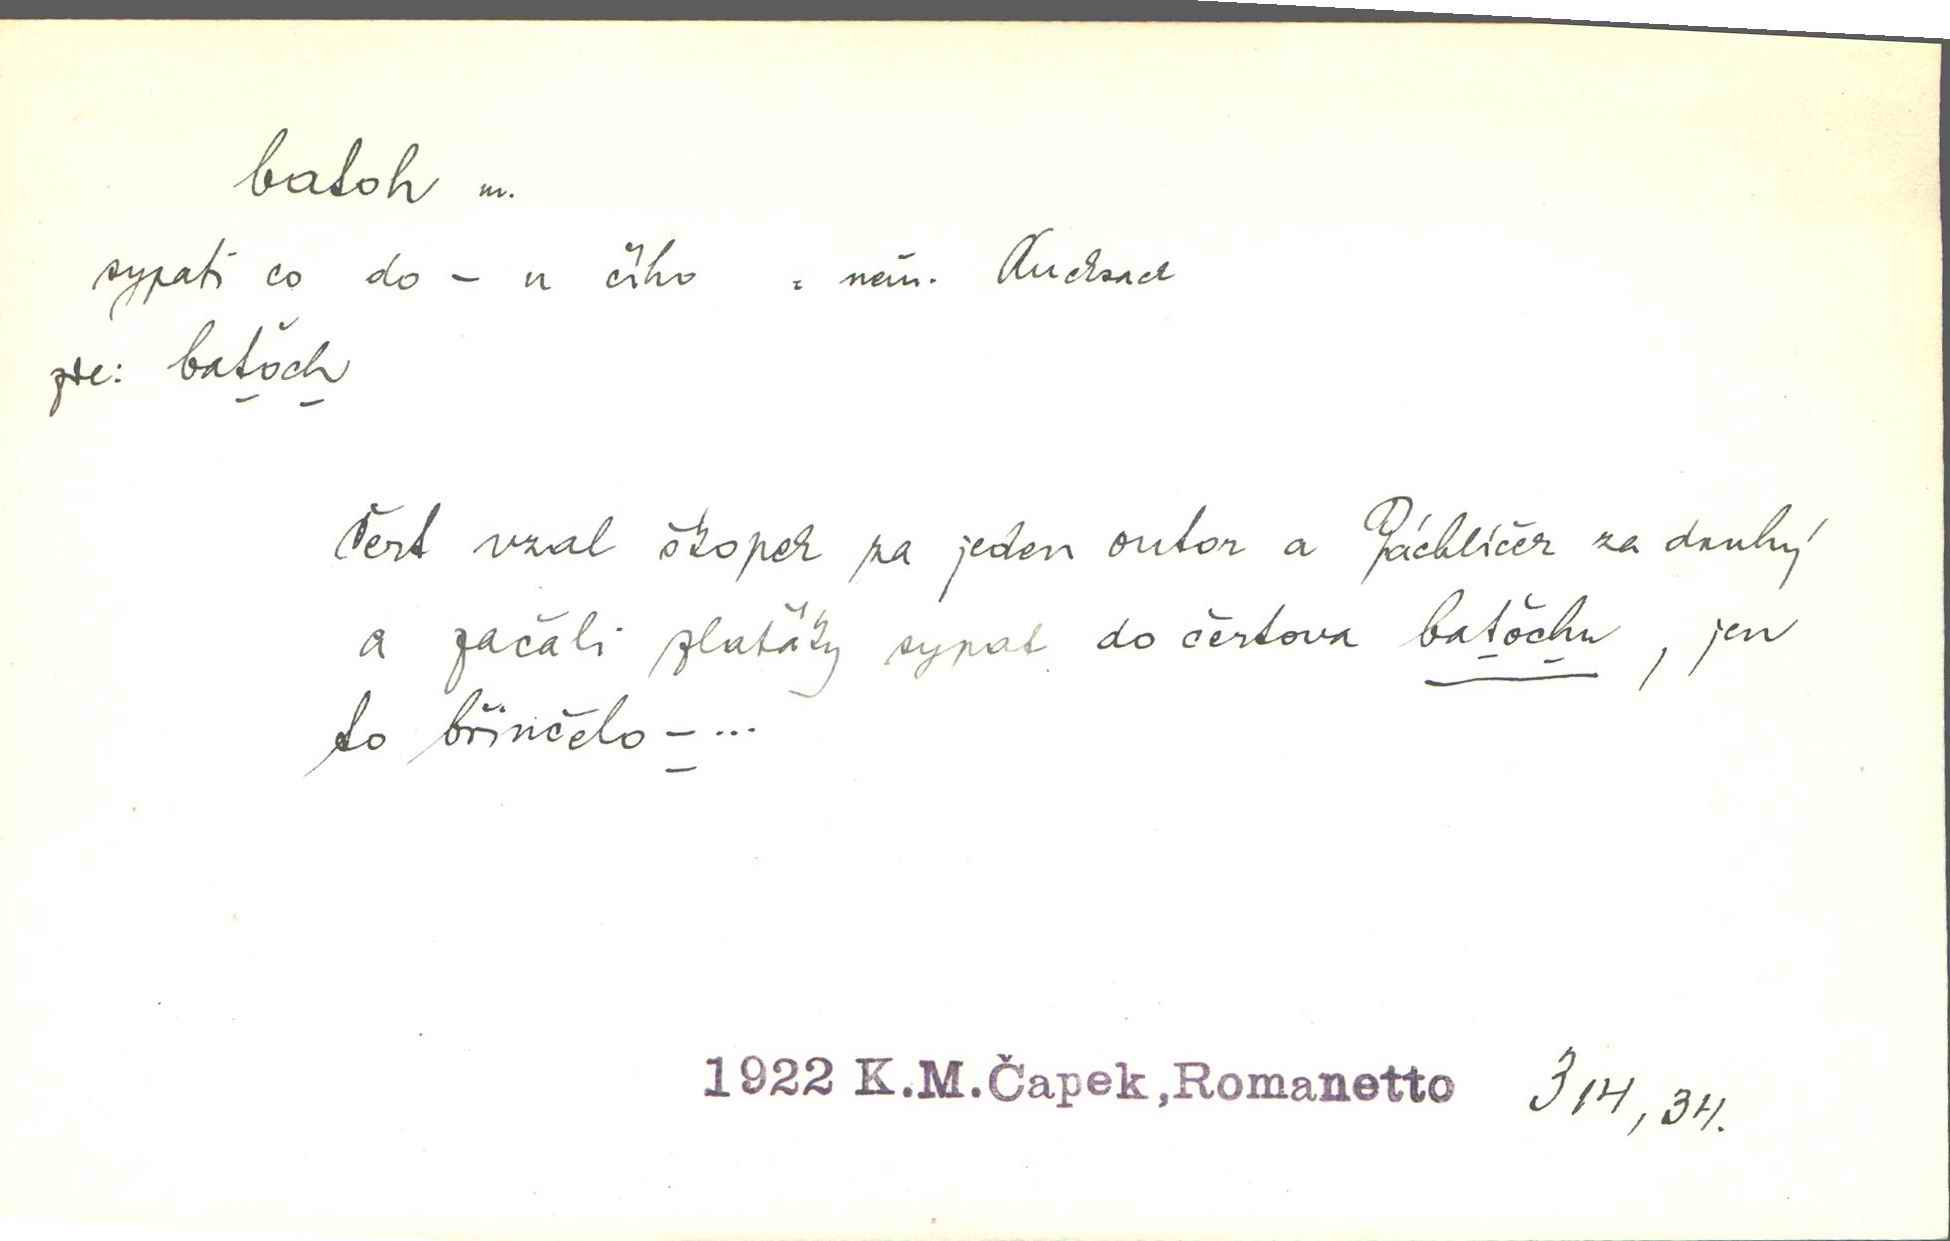 batoh m.
sypati co do – u čího = něm. Rucksack
zde: baťoch
Čert vzal škopek za jeden outor a Páchlíček za druhý
a začali zlaťáky sypat do čertova baťochu, jen
to břinčelo – ...
1922 K.M.Čapek,Romanetto 314,34.